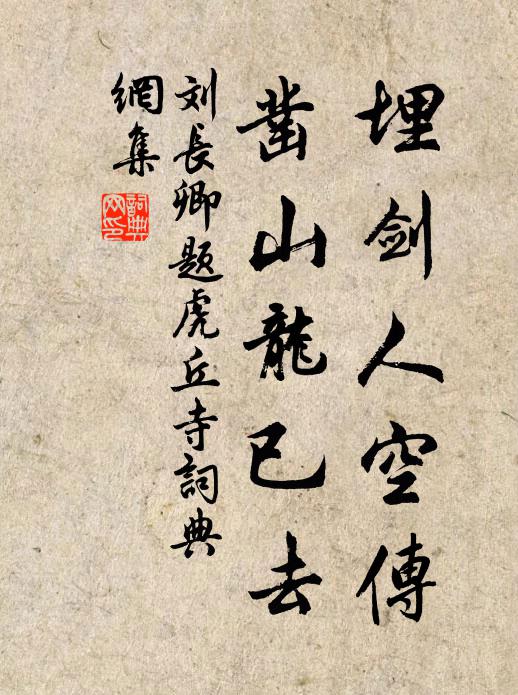 埋劍人空傳
鑿山龍已去
刘長卿題虎丘寺詞典
網集
詞典網印